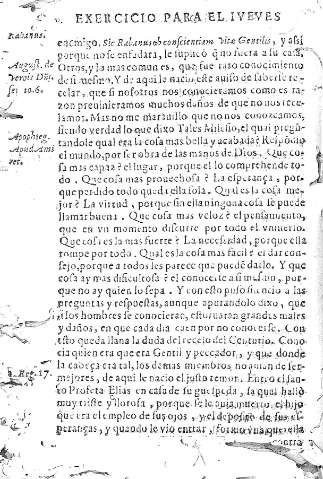 EXERCICIO PARA EL IVEVES
Rabanus.
enemigo. Sic Rabanus ob conscientiam Vitæ Gentilis, y assi
porque no se enfadara, le suplicò q̃ no fuera a su casa,
Otros, y la mas comun es, que fue raro conocimiento
August. de
Verbis Dñi,
ser. 10. 6.
de si mesmo. Y de aqui le nacio, este auiso de saberse re-
celar, que si nosotros nos conocieramos como es ra-
zon preuinieramos muchos daños de que no nos rece-
lamos. Mas no me marauillo que no nos conozcamos,
siendo verdad lo que dixo Tales Milesio, el qual pregũ-
Apophteg.
Apud Am
tandole qual era la cosa mas bella y acabada? Respõdio
el mundo, por ser obra de las manos de Dios. Que co-
sa mas capaz? el lugar, porque el lo comprehende to-
do. Que cosa mas prouechosa? La esperança, por-
que perdido todo queda ella sola. Qual es la cosa me-
jor? La virtud, porque sin ella ninguna cosa se puede
llamar buena. Que cosa mas veloz? el pensamiento,
que en vn momento discurre por todo el vniuerso.
Que cosa es la mas fuerte? La necessidad, porque ella
rompe por todo. Qual es la cosa mas facil? el dar con-
sejo, porque a todos les parece que puedẽ darlo. Y que
cosa ay mas dificultosa? el conocerse a si mesmo, por-
que no ay quien lo sepa. Y con esto puso silencio a las
preguntas y respuestas, aunque apurandolo dixo, que
si los hombres se conocieran, escusaran grandes males
y daños, en que cada dia caen por no conocerse. Con
esto queda llana la duda del recelo del Centurio. Cono
cia quien era que era Gentil y peccador, y que donde
la cabeça era tal, los demas miembros no auian de ser
3. Reg. 17.
mejores, de aqui le nacio el justo temor. Entro el san-
to Profeta Elias en casa de su guespeda, la qual hallò
muy triste y llorosa, porque se le auia muerto el hijo
que era el empleo de sus ojos, y el deposito de sus es-
peranças, y quando le vio entrar, formò vna querella
contra